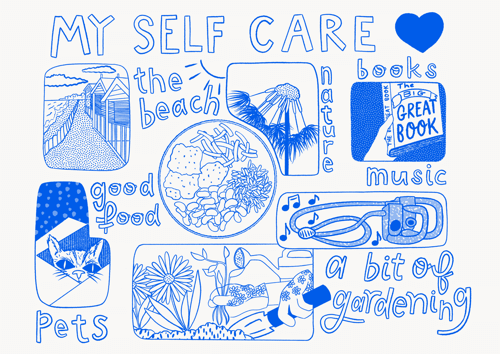 MY SELF CARE
the beach
nature
books
The
BIG
GREAT
BOOK
good
food
music
pets
a bit of
gardening